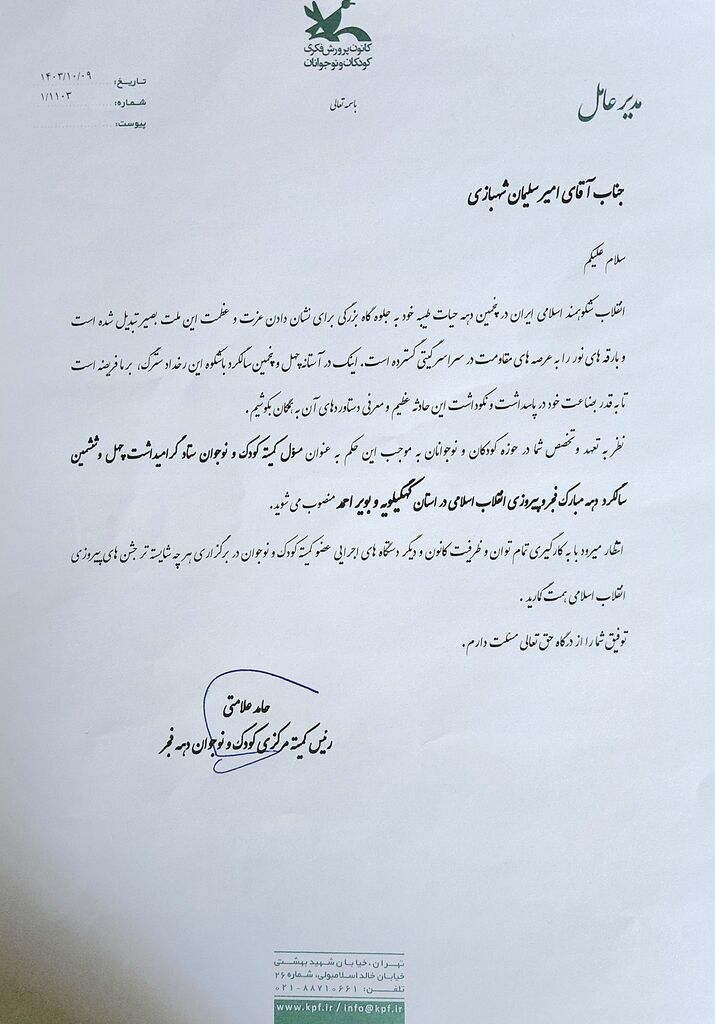 کانون پرورش فکری
کودکان و نوجوانان
تاریخ: ۱۴۰۳/۱۰/۰۹
شماره: ۱/۱۱۰۳
پیوست:
باسمه تعالی
مدیر عامل
جناب آقای امیر سلیمان شهبازی
سلام علیکم
انقلاب شکوهمند اسلامی ایران در پنجمین دهه حیات طیبه خود به جلوه گاه بزرگی برای نشان دادن عزت و عظمت این ملت بصیر تبدیل شده است
و بارقه های نور را به عرصه های مقاومت در سراسر گیتی گسترده است. اینک در آستانه چهل و پنجمین سالگرد باشکوه این رخداد سترگ، بر ما فریضه است
تا به قدر بضاعت خود در پاسداشت و نکوداشت این حادثه عظیم و معرفی دستاوردهای آن به همگان بکوشیم.
نظر به تعهد و تخصص شما در حوزه کودکان و نوجوانان به موجب این حکم به عنوان مسؤل کمیته کودک و نوجوان ستاد گرامیداشت چهل و ششمین
سالگرد دهه مبارک فجر و پیروزی انقلاب اسلامی در استان کهگیلویه و بویر احمد منصوب می شوید.
انتظار میرود با به کارگیری تمام توان و ظرفیت کانون و دیگر دستگاه های اجرایی عضو کمیته کودک و نوجوان در برگزاری هر چه شایسته تر جشن های پیروزی
انقلاب اسلامی همت گمارید .
توفیق شما را از درگاه حق تعالی مسئلت دارم.
حامد علامتی
رئیس کمیته مرکزی کودک و نوجوان دهه فجر
تهران، خیابان شهید بهشتی
خیابان خالد اسلامبولی، شماره ۲۶
تلفن: ۰۲۱-۸۸۷۱۰۶۶۱
www.kpf.ir / info@kpf.ir